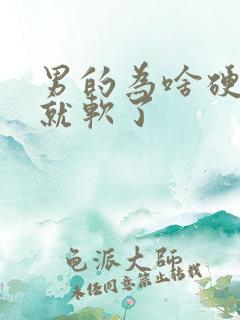 男的为啥硬
就软了
龟派大师
未经同意禁止转载